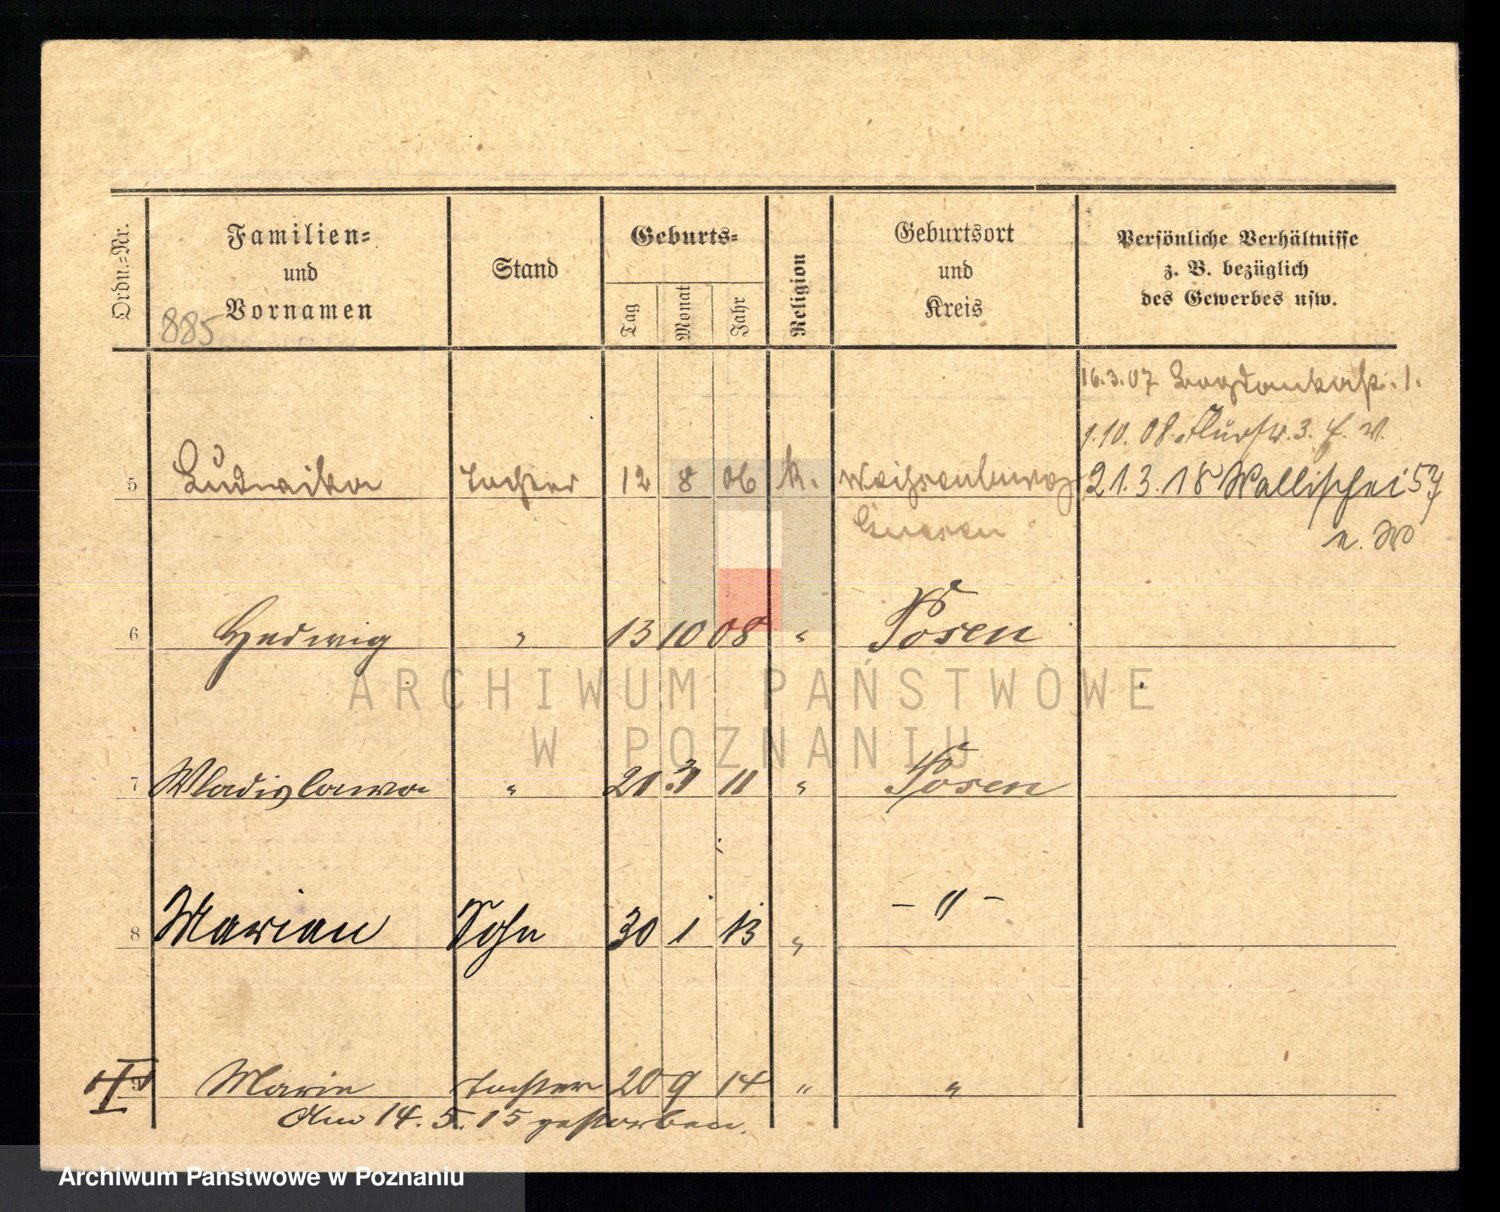 Ordn.=Nr.
Familien=
und
Vornamen
885
Stand
Geburts=
Tag
Monat
Jahr
Religion
Geburtsort
und
Kreis
Persönliche Verhältnisse
z. B. bezüglich
des Gewerbes usw.
16.3.07 Bogdankastr. 1.
1.10.08. Flurstr. 3.
5 Ludwika Tochter 12 8 06 k. Weißenburg 21.3.18 Wallischei
Gnesen
6 Hedwig " 13 10 08 " Posen
ARCHIWUM PAŃSTWOWE
W POZNANIU
7 Wladislawa " 21 3 11 " Posen
8 Marian Sohn 30 1 13 " - " -
9 Marie Tochter 20 9 14 " "
Am 14.5.15 gestorben.
Archiwum Państwowe w Poznaniu